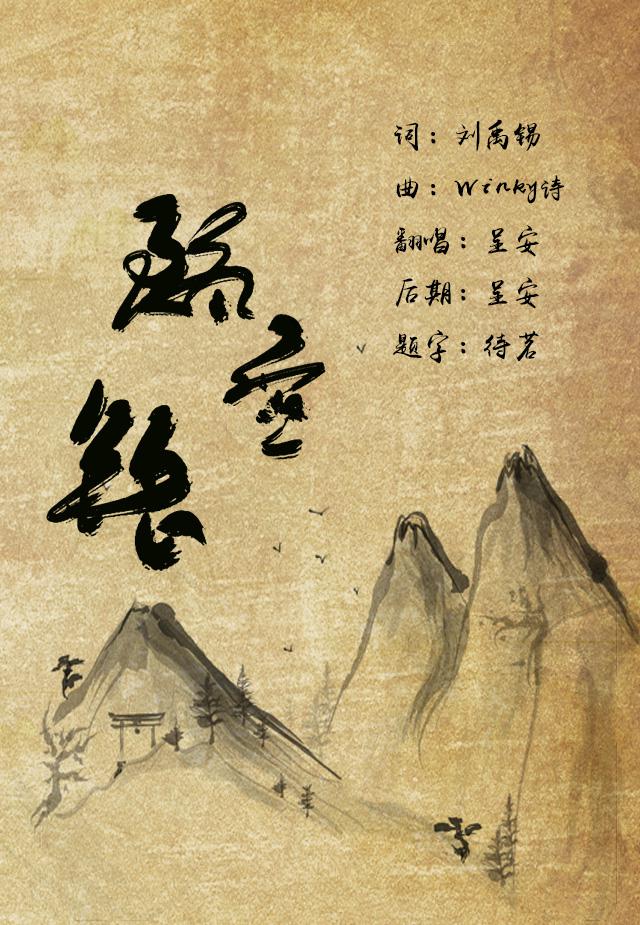 词：刘禹锡
曲：Winky诗
翻唱：呈安
后期：呈安
题字：待茗